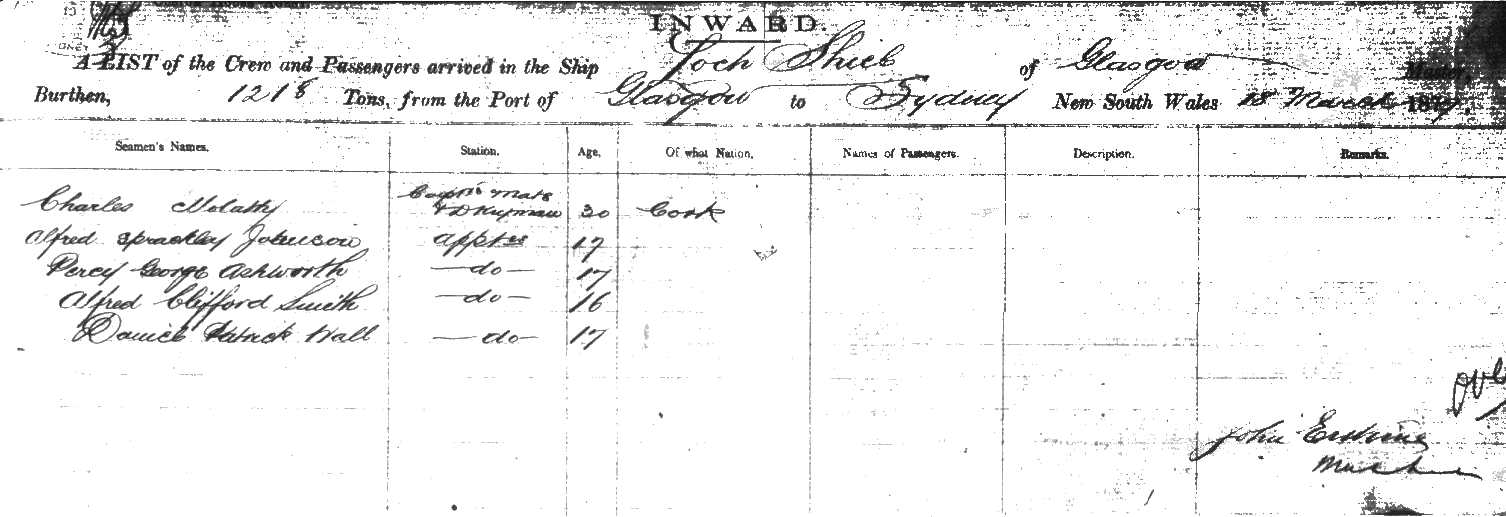 INWARD.
A LIST of the Crew and Passengers arrived in the Ship Loch Shiel of Glasgow Master,
Burthen, 1218 Tons, from the Port of Glasgow to Sydney New South Wales 18 March
Seamen's Names. Station. Age. Of what Nation. Names of Passengers. Description. Remarks.
Charles 30 Cork
Alfred Sprackley Johnson apptce 17
Percy George Ashworth — do — 17
Alfred Clifford Smith — do — 16
Daniel Patrick Wall — do — 17
John Erskine
Master